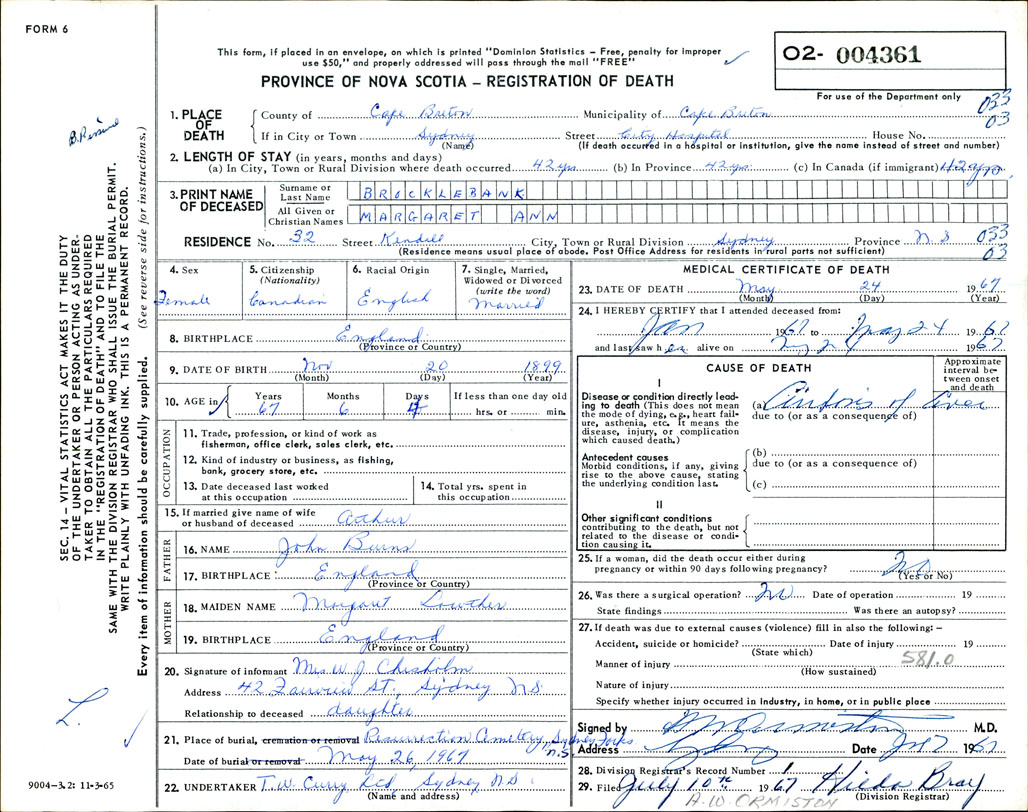 FORM 6
This form, if placed in an envelope, on which is printed "Dominion Statistics – Free, penalty for improper
use $50," and properly addressed will pass through the mail "FREE"
PROVINCE OF NOVA SCOTIA – REGISTRATION OF DEATH
02- 004361
For use of the Department only
033
03
1. PLACE OF DEATH
County of Cape Breton Municipality of Cape Breton
If in City or Town Sydney Street City Hospital House No.
(Name) (If death occurred in a hospital or institution, give the name instead of street and number)
2. LENGTH OF STAY (in years, months and days)
(a) In City, Town or Rural Division where death occurred 42 yrs. (b) In Province 42 yrs. (c) In Canada (if immigrant) 42 yrs.
3. PRINT NAME OF DECEASED
Surname or Last Name BROCKLEBANK
All Given or Christian Names MARGARET ANN
RESIDENCE No. 32 Street City, Town or Rural Division Sydney Province N.S. 033
03
(Residence means usual place of abode. Post Office Address for residents in rural parts not sufficient)
4. Sex
Female
5. Citizenship
(Nationality)
Canadian
6. Racial Origin
English
7. Single, Married,
Widowed or Divorced
(write the word)
Married
8. BIRTHPLACE England
(Province or Country)
9. DATE OF BIRTH Nov 20 1899
(Month) (Day) (Year)
10. AGE in Years Months Days If less than one day old
67 6 4 hrs. or min.
OCCUPATION
11. Trade, profession, or kind of work as
fisherman, office clerk, sales clerk, etc.
12. Kind of industry or business, as fishing,
bank, grocery store, etc.
13. Date deceased last worked
at this occupation
14. Total yrs. spent in
this occupation
15. If married give name of wife
or husband of deceased Arthur
FATHER
16. NAME John Burns
17. BIRTHPLACE England
(Province or Country)
MOTHER
18. MAIDEN NAME Margaret Lowther
19. BIRTHPLACE England
(Province or Country)
20. Signature of informant Mrs. W. J. Chisholm
Address 42 Fairview St., Sydney N.S.
Relationship to deceased daughter
21. Place of burial, cremation or removal Resurrection Cemetery, Sydney Forks
N.S.
Date of burial or removal May 26, 1967
22. UNDERTAKER T. W. Curry Ltd, Sydney N.S.
(Name and address)
MEDICAL CERTIFICATE OF DEATH
23. DATE OF DEATH May 24 1967
(Month) (Day) (Year)
24. I HEREBY CERTIFY that I attended deceased from:
Jan 1967 to May 24 1967
and last saw her alive on May 24 1967
CAUSE OF DEATH
Approximate
interval be-
tween onset
and death
I
Disease or condition directly lead-
ing to death (This does not mean
the mode of dying, e.g., heart fail-
ure, asthenia, etc. It means the
disease, injury, or complication
which caused death.)
(a) Cirrhosis of liver
due to (or as a consequence of)
Antecedent causes
Morbid conditions, if any, giving
rise to the above cause, stating
the underlying condition last.
(b)
due to (or as a consequence of)
(c)
II
Other significant conditions
contributing to the death, but not
related to the disease or condi-
tion causing it.
25. If a woman, did the death occur either during
pregnancy or within 90 days following pregnancy? No
(Yes or No)
26. Was there a surgical operation? No Date of operation 19
State findings Was there an autopsy?
27. If death was due to external causes (violence) fill in also the following: –
Accident, suicide or homicide? Date of injury 19
(State which) 581.0
Manner of injury
(How sustained)
Nature of injury
Specify whether injury occurred in industry, in home, or in public place
Signed by M.D.
Address Sydney Date 1967
28. Division Registrar's Record Number
29. Filed July 10th 1967 Hilda Bray
(Division Registrar)
A. W. ORMISTON
SEC. 14 – VITAL STATISTICS ACT MAKES IT THE DUTY
OF THE UNDERTAKER OR PERSON ACTING AS UNDER-
TAKER TO OBTAIN ALL THE PARTICULARS REQUIRED
IN THE "REGISTRATION OF DEATH" AND TO FILE THE
SAME WITH THE DIVISION REGISTRAR WHO SHALL ISSUE THE BURIAL PERMIT.
WRITE PLAINLY WITH UNFADING INK. THIS IS A PERMANENT RECORD.
Every item of information should be carefully supplied. (See reverse side for instructions.)
L.
9004-3.2: 11-3-65